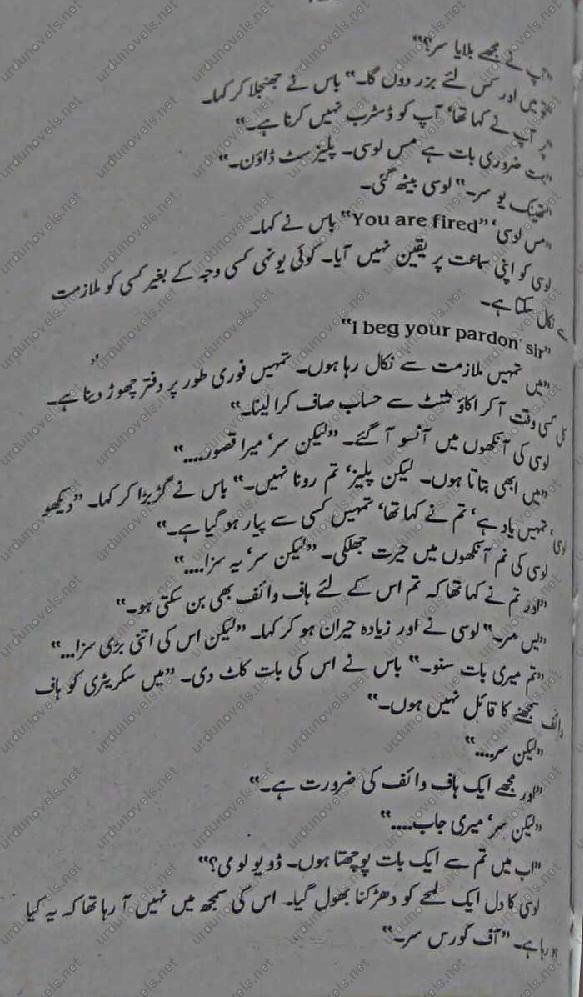 آپ نے مجھے بلایا سر؟"
"تو میں اور کس لئے بزر دوں گا۔" باس نے جھنجلا کر کہا۔
"سر آپ نے کہا تھا' آپ کو ڈسٹرب نہیں کرنا ہے۔"
"بہت ضروری بات ہے مس لوسی۔ پلیز سٹ ڈاؤن۔"
"تھینک یو سر۔" لوسی بیٹھ گئی۔
"مس لوسی' "You are fired" باس نے کہا۔
لوسی کو اپنی سماعت پر یقین نہیں آیا۔ کوئی یونہی کسی وجہ کے بغیر کسی کو ملازمت
سے نکال سکتا ہے۔
"I beg your pardon' sir"
"میں تمہیں ملازمت سے نکال رہا ہوں۔ تمہیں فوری طور پر دفتر چھوڑ دینا ہے۔
کل کسی وقت آ کر اکاؤنٹنٹ سے حساب صاف کرا لینا۔"
لوسی کی آنکھوں میں آنسو آ گئے۔ "لیکن سر' میرا قصور...."
"میں ابھی بتاتا ہوں۔ لیکن پلیز' تم رونا نہیں۔" باس نے گڑبڑا کر کہا۔ "دیکھو
لوسی' تمہیں یاد ہے' تم نے کہا تھا' تمہیں کسی سے پیار ہو گیا ہے۔"
لوسی کی نم آنکھوں میں حیرت جھلکی۔ "لیکن سر' یہ سزا...."
"اور تم نے کہا تھا کہ تم اس کے لئے ہاف وائف بھی بن سکتی ہو۔"
"یس سر۔" لوسی نے اور زیادہ حیران ہو کر کہا۔ "لیکن اس کی اتنی بڑی سزا..."
"تم میری بات سنو۔" باس نے اس کی بات کاٹ دی۔ "میں سکریٹری کو ہاف
وائف سمجھنے کا قائل نہیں ہوں۔"
"لیکن سر...."
"اور مجھے ایک ہاف وائف کی ضرورت ہے۔"
"لیکن سر' میری جاب...."
"اب میں تم سے ایک بات پوچھتا ہوں۔ ڈو یو لو می؟"
لوسی کا دل ایک لمحے کو دھڑکنا بھول گیا۔ اس کی سمجھ میں نہیں آ رہا تھا کہ یہ کیا
ہو رہا ہے۔ "آف کورس سر۔"
urdunovels.net